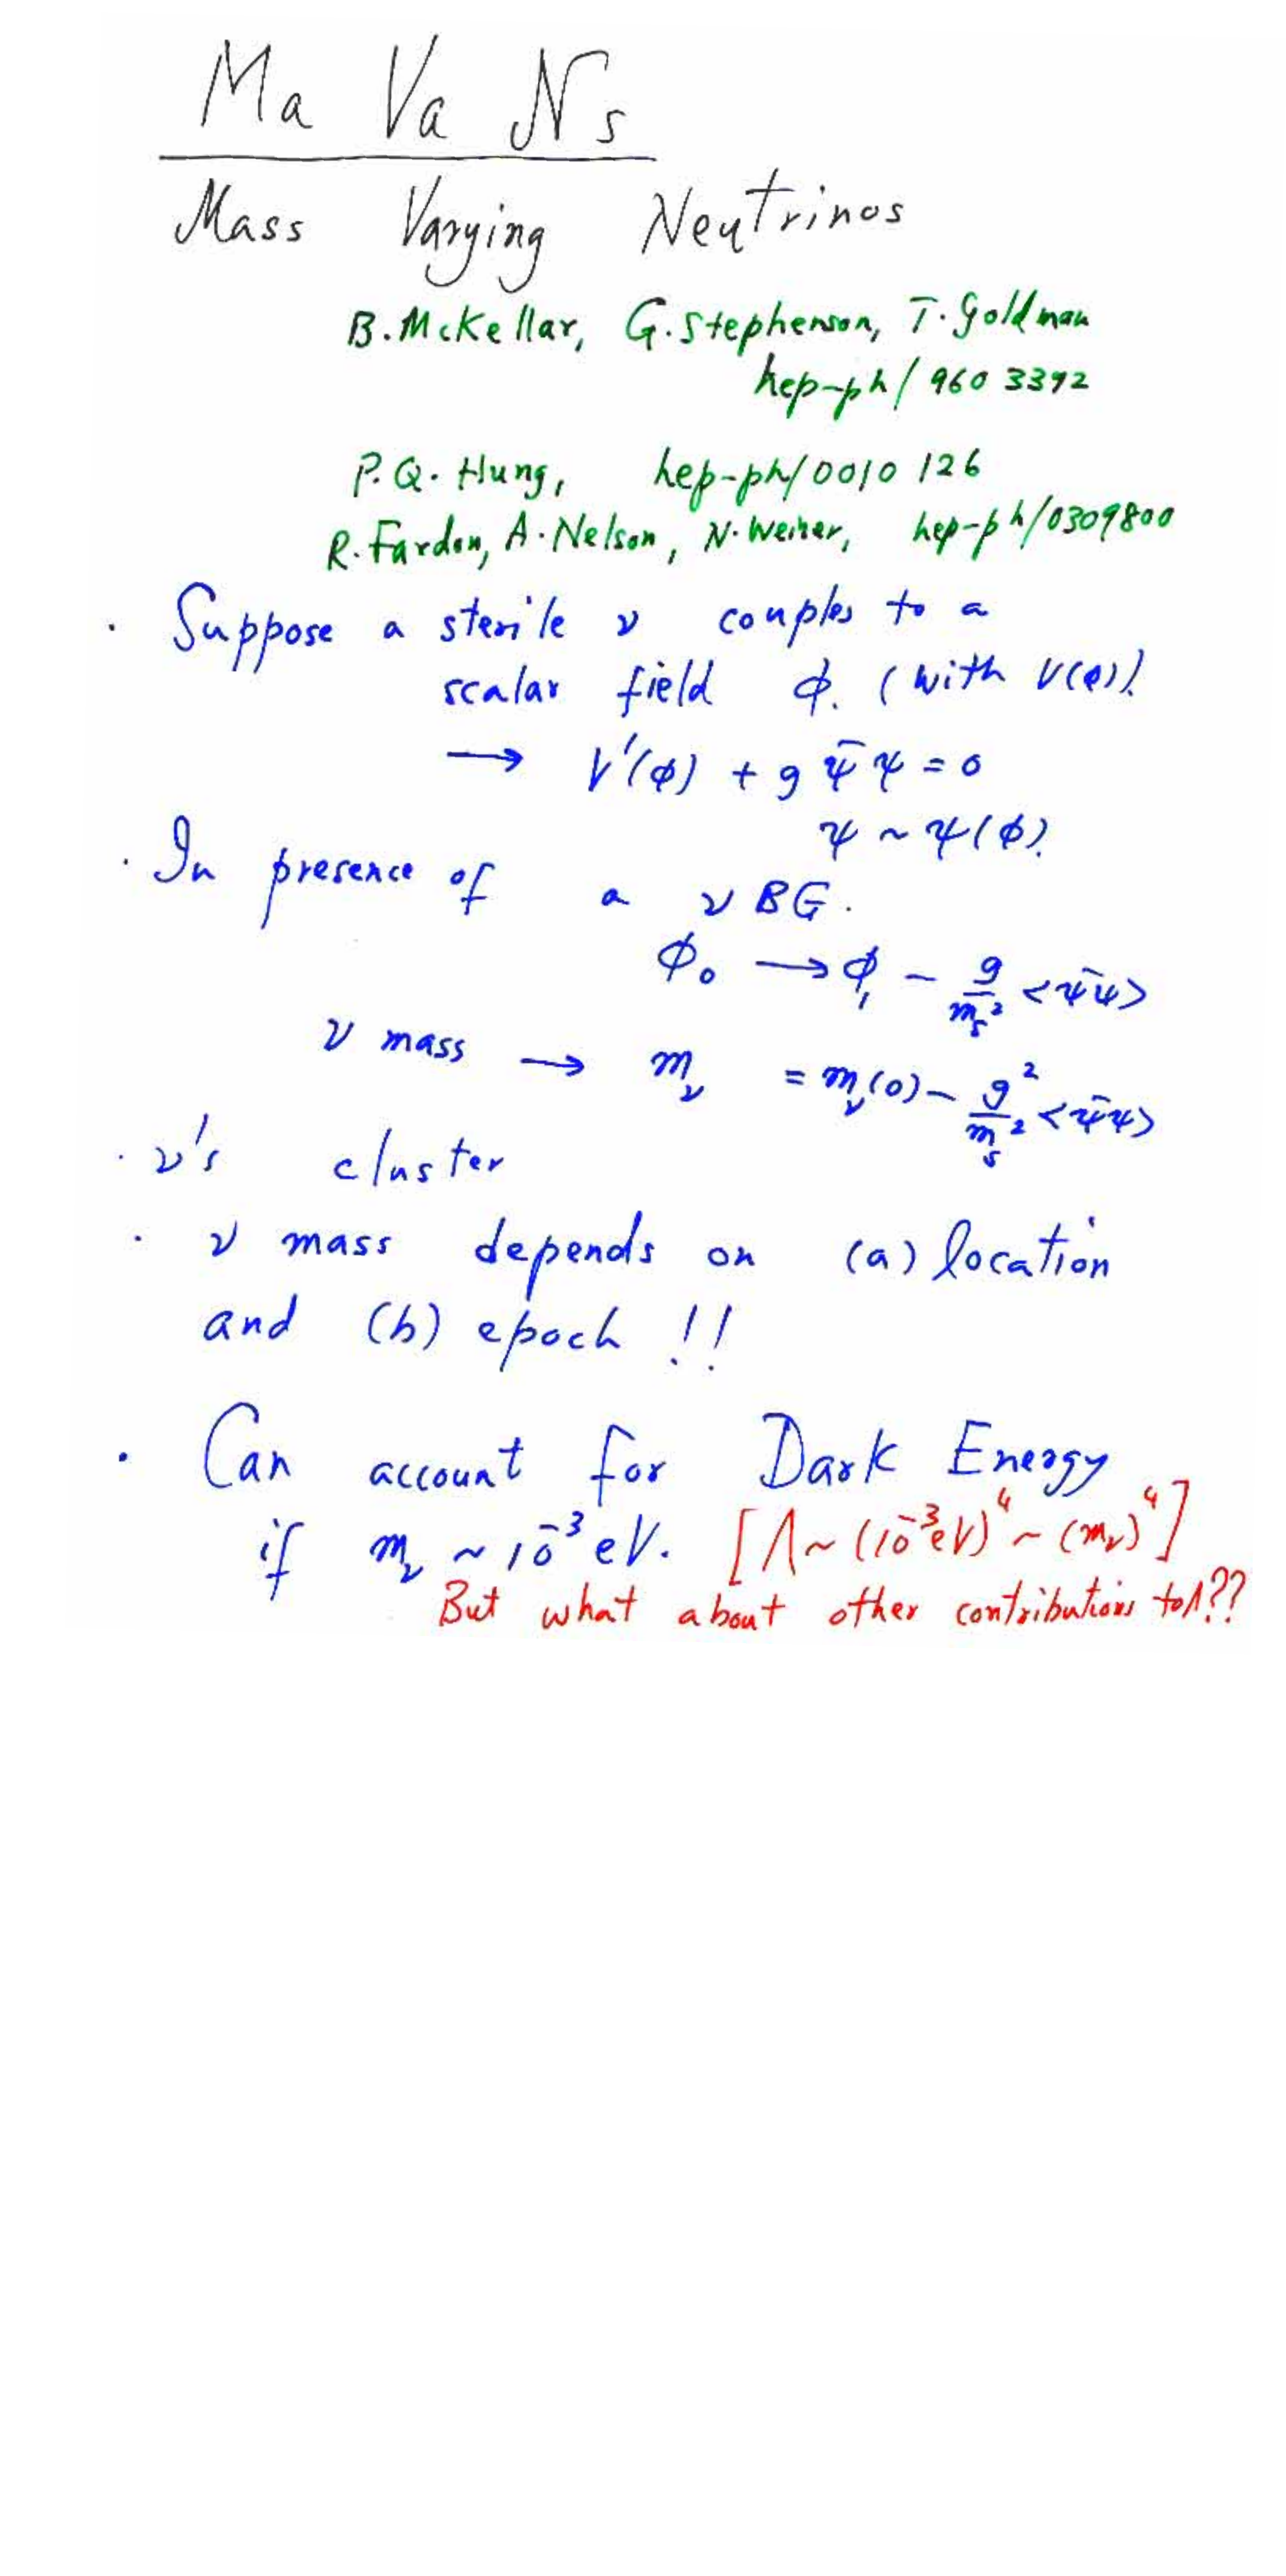 Ma Va Ns
Mass Varying Neutrinos
B. McKellar, G. Stephenson, T. Goldman
hep-ph/9603392
P.Q. Hung, hep-ph/0010126
R. Fardon, A. Nelson, N. Weiner, hep-ph/0309800
· Suppose a sterile ν couples to a
scalar field ϕ. (with V(ϕ)).
→ V'(ϕ) + g ψ̄ψ = 0
ψ ~ ψ(ϕ).
· In presence of a νBG.
ϕ₀ → ϕ₁ − g/mₛ² <ψ̄ψ>
ν mass → m_ν = m_ν(0) − g²/mₛ² <ψ̄ψ>
· ν's cluster
· ν mass depends on (a) location
and (b) epoch !!
· Can account for Dark Energy
if m_ν ~ 10⁻³ eV. [Λ ~ (10⁻³eV)⁴ ~ (m_ν)⁴]
But what about other contributions to Λ??